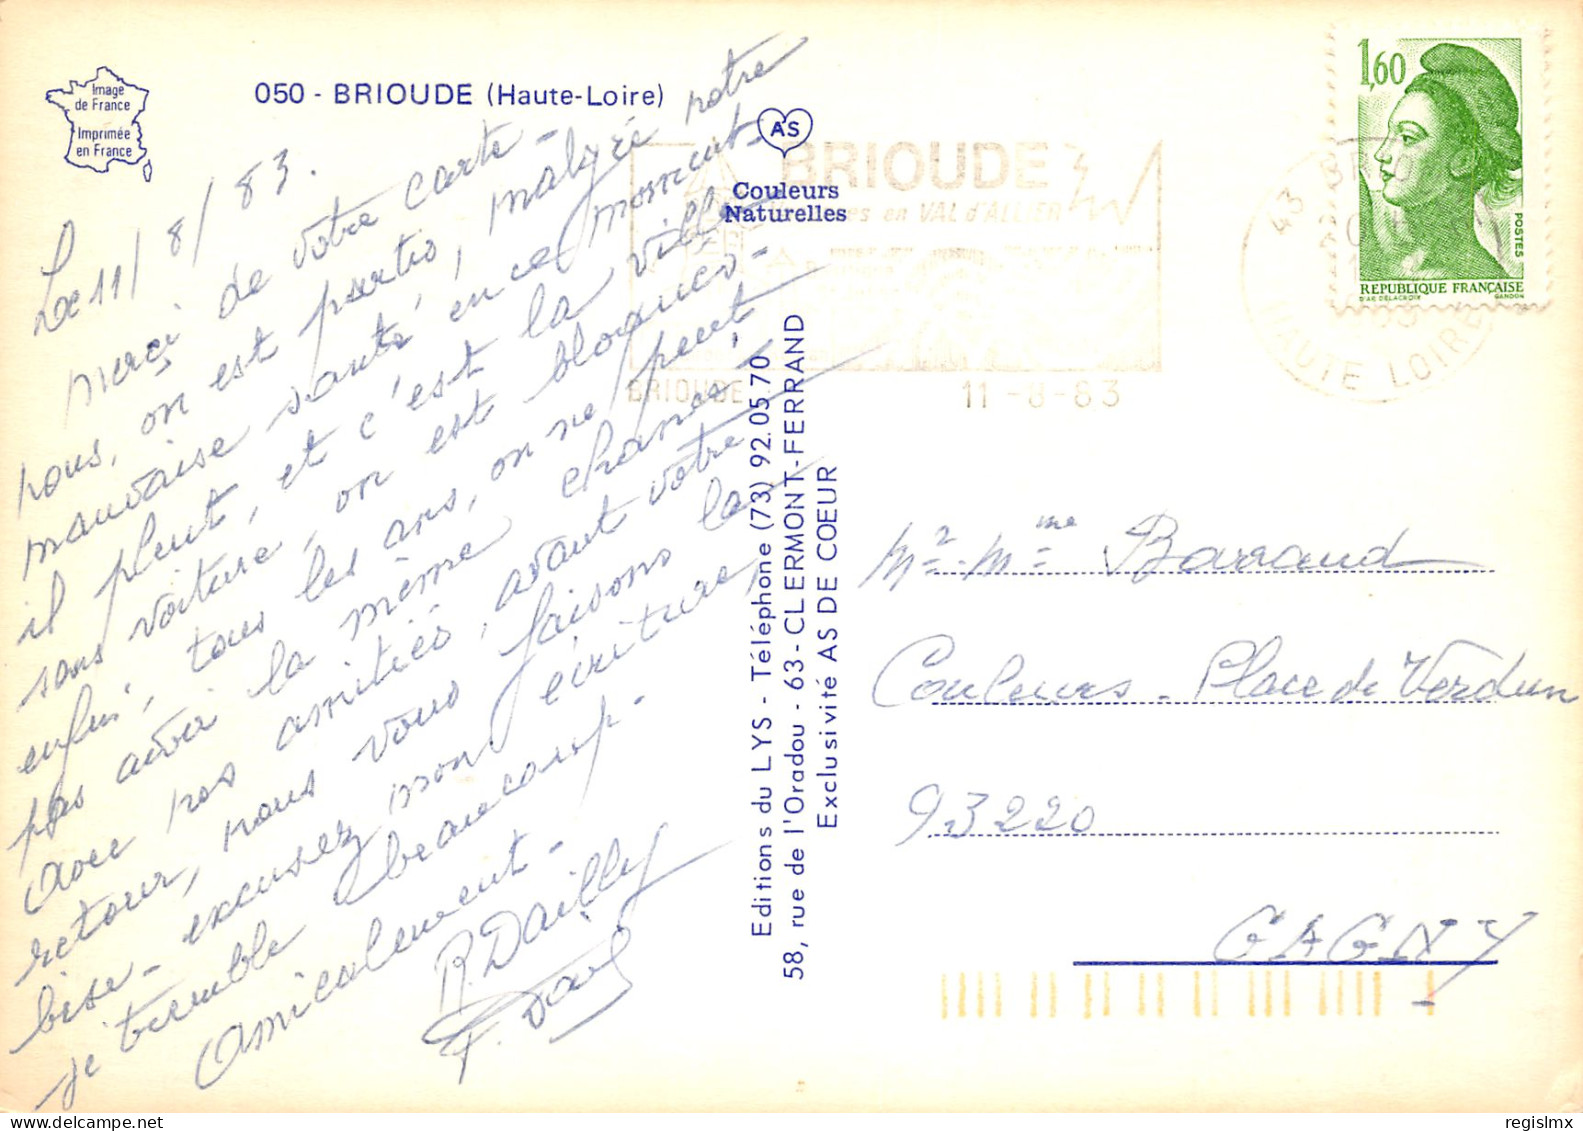 Image
de France
Imprimée
en France
050 - BRIOUDE (Haute-Loire)
Le 11/8/83.
Merci de votre carte -
nous, on est partis, malgré notre
mauvaise santé, en ce moment -
il pleut, et c'est la ville
sans voiture, on est bloqués -
enfin, tous les ans, on ne peut
pas avoir la même chance,
avec nos amitiés, avant votre
retour, nous vous faisons la
bise - excusez mon écriture,
je tremble beaucoup -
Amicalement -
R. Dailly
AS
Couleurs
Naturelles
Editions du LYS - Téléphone (73) 92.05.70
58, rue de l'Oradou - 63 - CLERMONT-FERRAND
Exclusivité AS DE COEUR
BRIOUDE
en VAL d'ALLIER
BRIOUDE
11-8-83
43 BRIOUDE
HAUTE LOIRE
1,60
POSTES
REPUBLIQUE FRANÇAISE
D'AP. DELACROIX GANDON
Mr. Mme Barraud
Couleurs - Place de Verdun
93220
GAGNY
regislmx